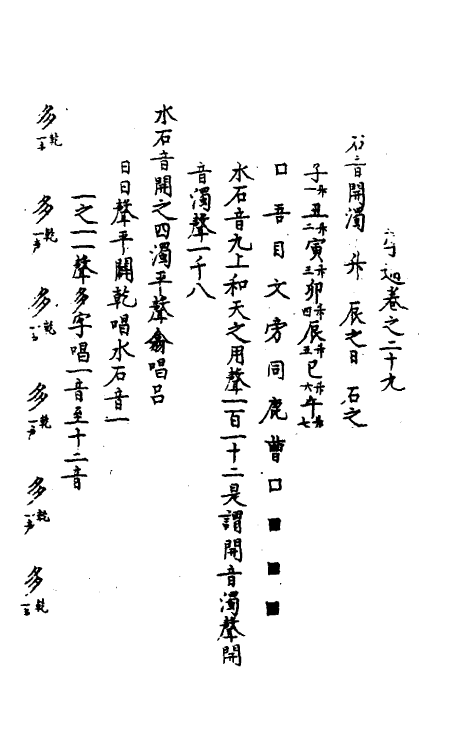 卷之二十九
石音開濁 升 辰之日 石之
子一升丑二升寅三升卯四升辰五升巳六升午七升
口吾目文旁同鹿曹口■■■
水石音九上和天之用聲一百一十二是謂開音濁聲開
音濁聲一千八
水石音開之四濁平聲翕唱呂
日日聲平闢乾唱水石音一
一之一聲多字唱一音至十二音
多乾一聲 多乾一聲 多乾一聲 多乾一聲 多乾一聲 多乾一聲